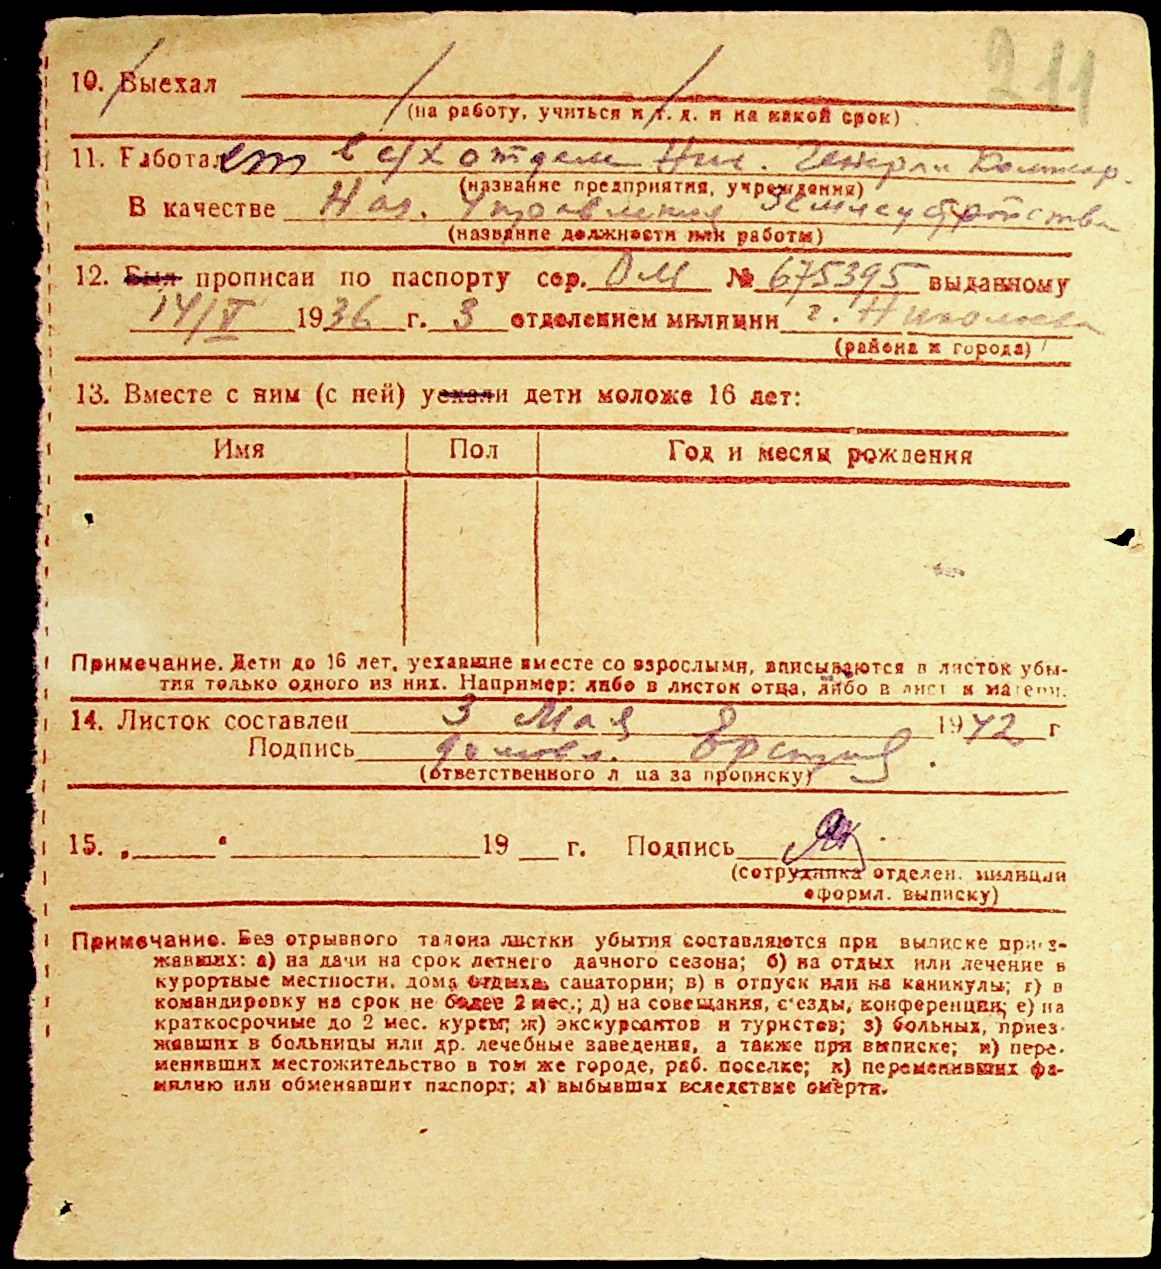 211
10. Выехал
(на работу, учиться и т. д. и на какой срок)
11. Работает в с/х отделе Ник. Генерал Комисар.
(название предприятия, учреждения)
В качестве Нач. Управления Землеустройства
(название должности или работы)
12. Был прописан по паспорту сер. ОМ № 675395 выданному
14/V 1936 г. 3 отделением милиции г. Николаева
(района и города)
13. Вместе с ним (с ней) уехали дети моложе 16 лет:
Имя Пол Год и месяц рождения
Примечание. Дети до 16 лет, уехавшие вместе со взрослыми, вписываются в листок убы-
тия только одного из них. Например: либо в листок отца, либо в листок матери.
14. Листок составлен 3 Мая 1942 г
Подпись домовл.
(ответственного лица за прописку)
15. „ " 19 г. Подпись
(сотрудника отделен. милиции
оформл. выписку)
Примечание. Без отрывного талона листки убытия составляются при выписке приез-
жавших: а) на дачи на срок летнего дачного сезона; б) на отдых или лечение в
курортные местности, дома отдыха, санатории; в) в отпуск или на каникулы; г) в
командировку на срок не более 2 мес.; д) на совещания, с'езды, конференции; е) на
краткосрочные до 2 мес. курсы; ж) экскурсантов и туристов; з) больных, приез-
жавших в больницы или др. лечебные заведения, а также при выписке; и) пере-
менивших местожительство в том же городе, раб. поселке; к) переменивших фа-
милию или обменявшит паспорт; л) выбывших вследствие смерти.